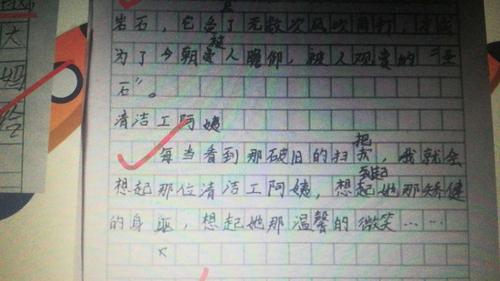 岩石，它了无数次风吹雨打，才成
为了今朝被人瞻仰，被人观赏的"
石"。
清洁工阿姨
每当看到那破旧的扫把，我就会
想起那位清洁工阿姨，想起她那矫健
的身，想起她那温馨的微笑……
大
妈